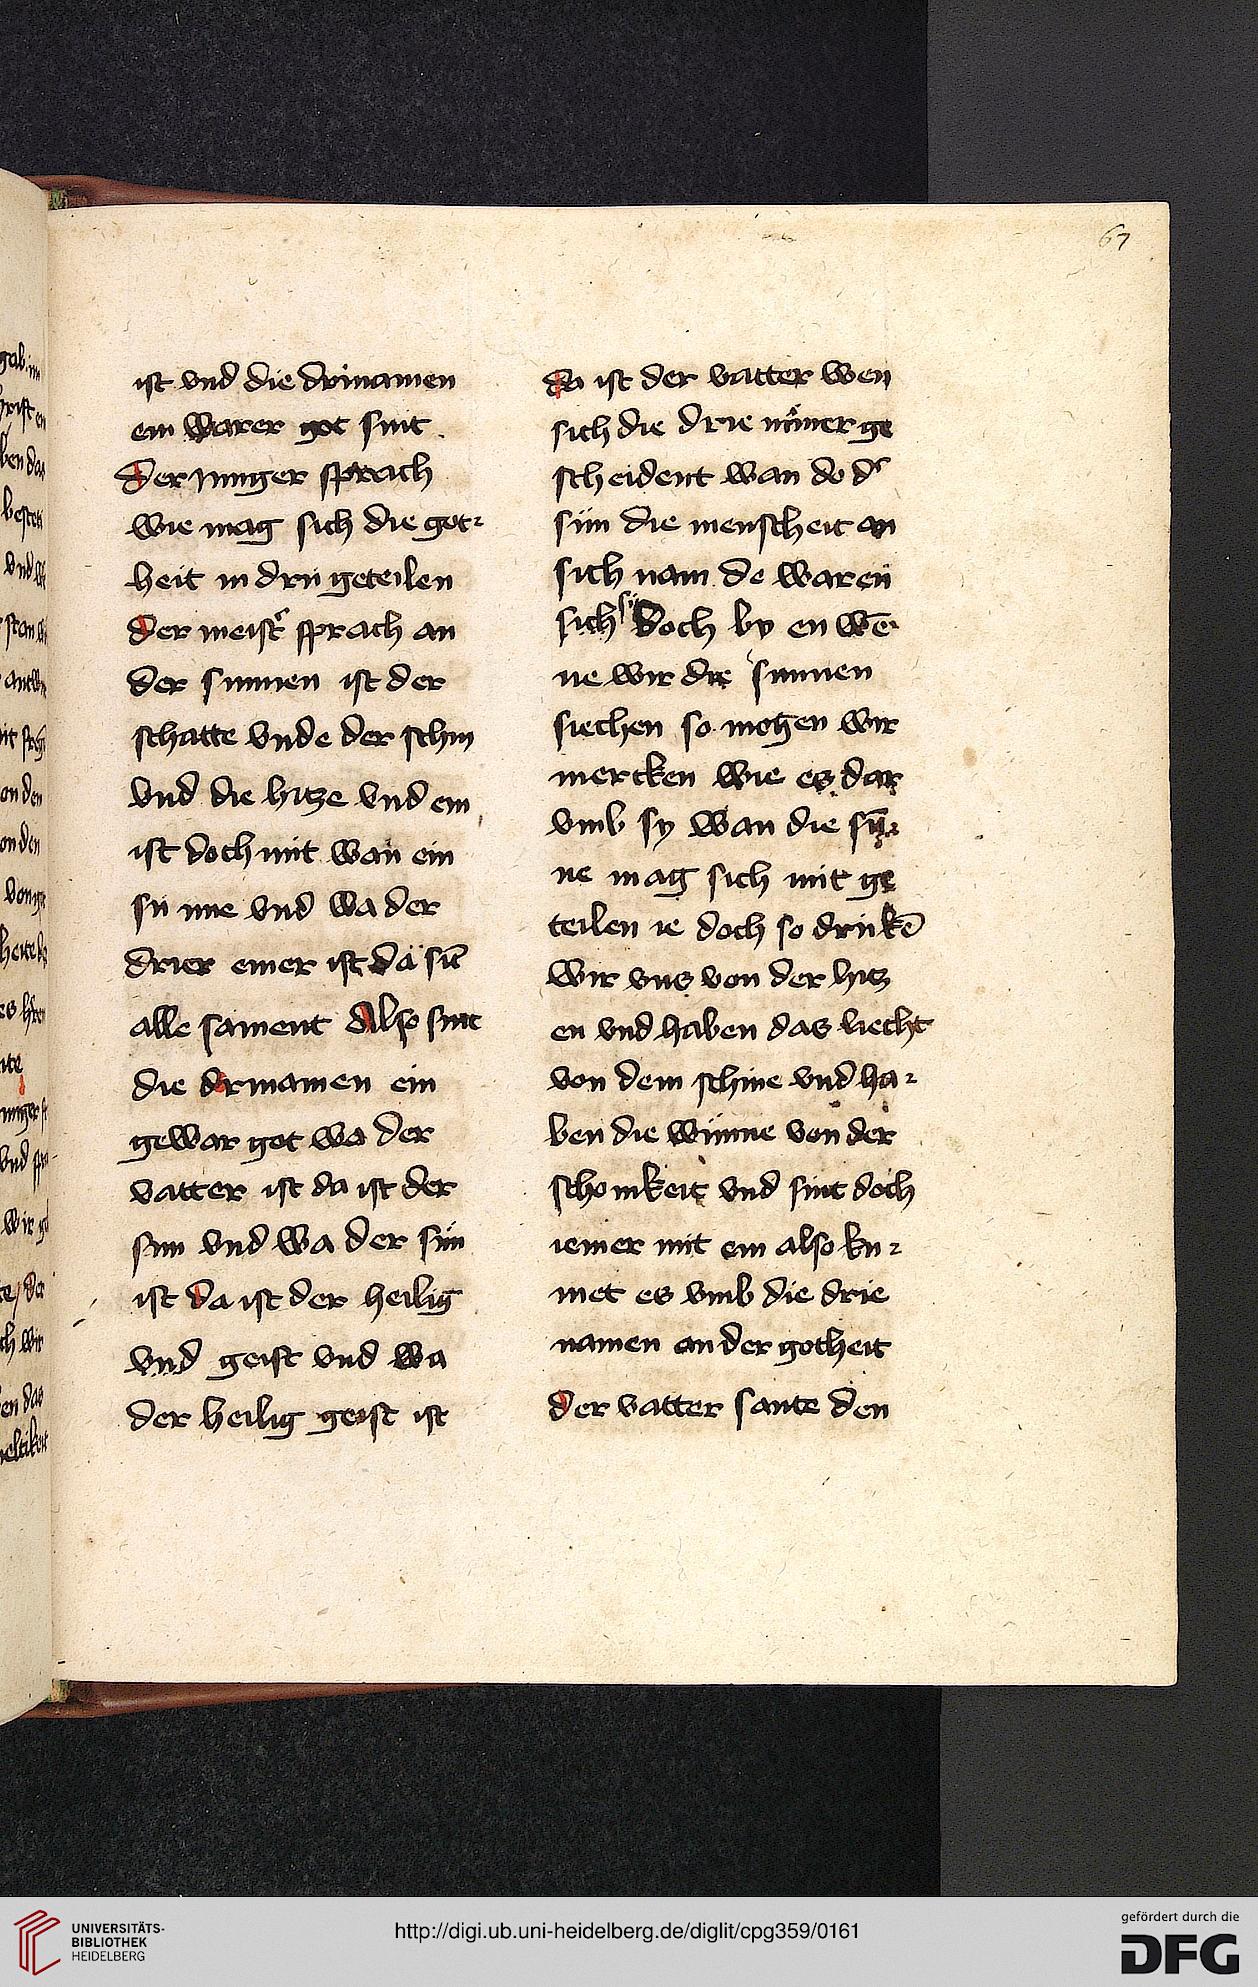 67
ist vnd die drinamen
ein warer got sint
Der Junger sprach
wie mag sich die got⸗
heit in dri geteilen
Der meistˀ sprach an
der sunnen ist der
schatte vnde der schin
vnd die hitze vnd ein
ist doch mit wan ein
sú nne vnd wa der
drier einer ist da sīt
alle sament Also sint
die drinamen ein
gewar got wa der
vatter ist da ist der
sun vnd wa der sún
ist da ist der heilig
vnd geist vnd wa
der heilig geist ist
da ist der vatter wen
sich die drie niͤmer ge
scheident wan do dˀ
sún die menscheit an
sich nam de waren
sich sú doch by en wē⸗
ne wir die sunnen
siechen so mogen wir
mercken wie es dar
vmb sy wan die sū⸗
ne mag sich mit ge
teilen ie doch so drinkē
wir vns von der hitz
en vnd haben das liecht
von dem schine vnd ha⸗
ben die wúnne von der
schonikeit vnd sint doch
iemer mit ein also ku⸗
met es vmb die drie
namen an der gotheit
der vatter sante den
UNIVERSITÄTS-
BIBLIOTHEK
HEIDELBERG
http://digi.ub.uni-heidelberg.de/diglit/cpg359/0161
gefördert durch die
DFG